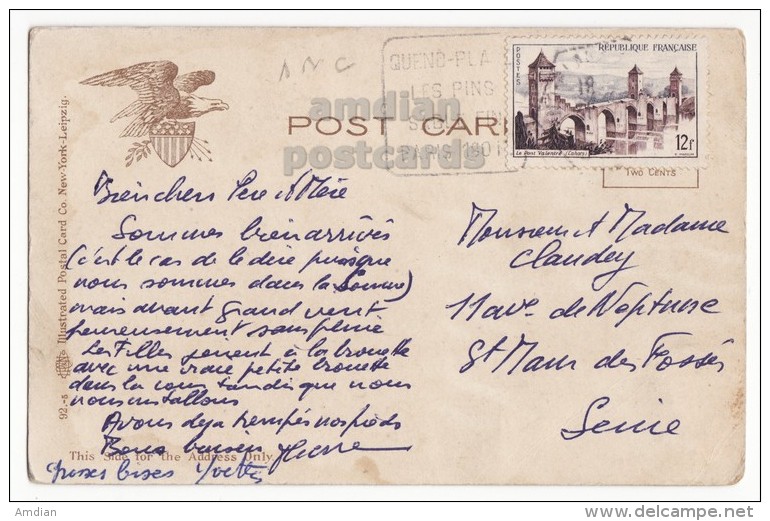 QUEND-PLA
LES PINS
PARIS 180
RÉPUBLIQUE FRANÇAISE
POSTES
12f
Le Pont Valentré (Cahors)
POST CAR
amdian
postcards
TWO CENTS
92.-5 Illustrated Postal Card Co. New-York-Leipzig.
Bien chers Père et Mère
Sommes bien arrivés
(c'est le cas de le dire puisque
nous sommes dans la Somme)
mais avant grand vent
heureusement sans pluie
Les filles jouent à la brouette
avec une vraie petite brouette
dans la cour tandis que nous
nous installons
Avons déjà trempés nos pieds
Bons baisers Pierre
This Side for the Address Only.
Grosses bises Yvette
Monsieur et Madame
Claudey
11 ave de Neptune
St Maur des Fossés
Seine